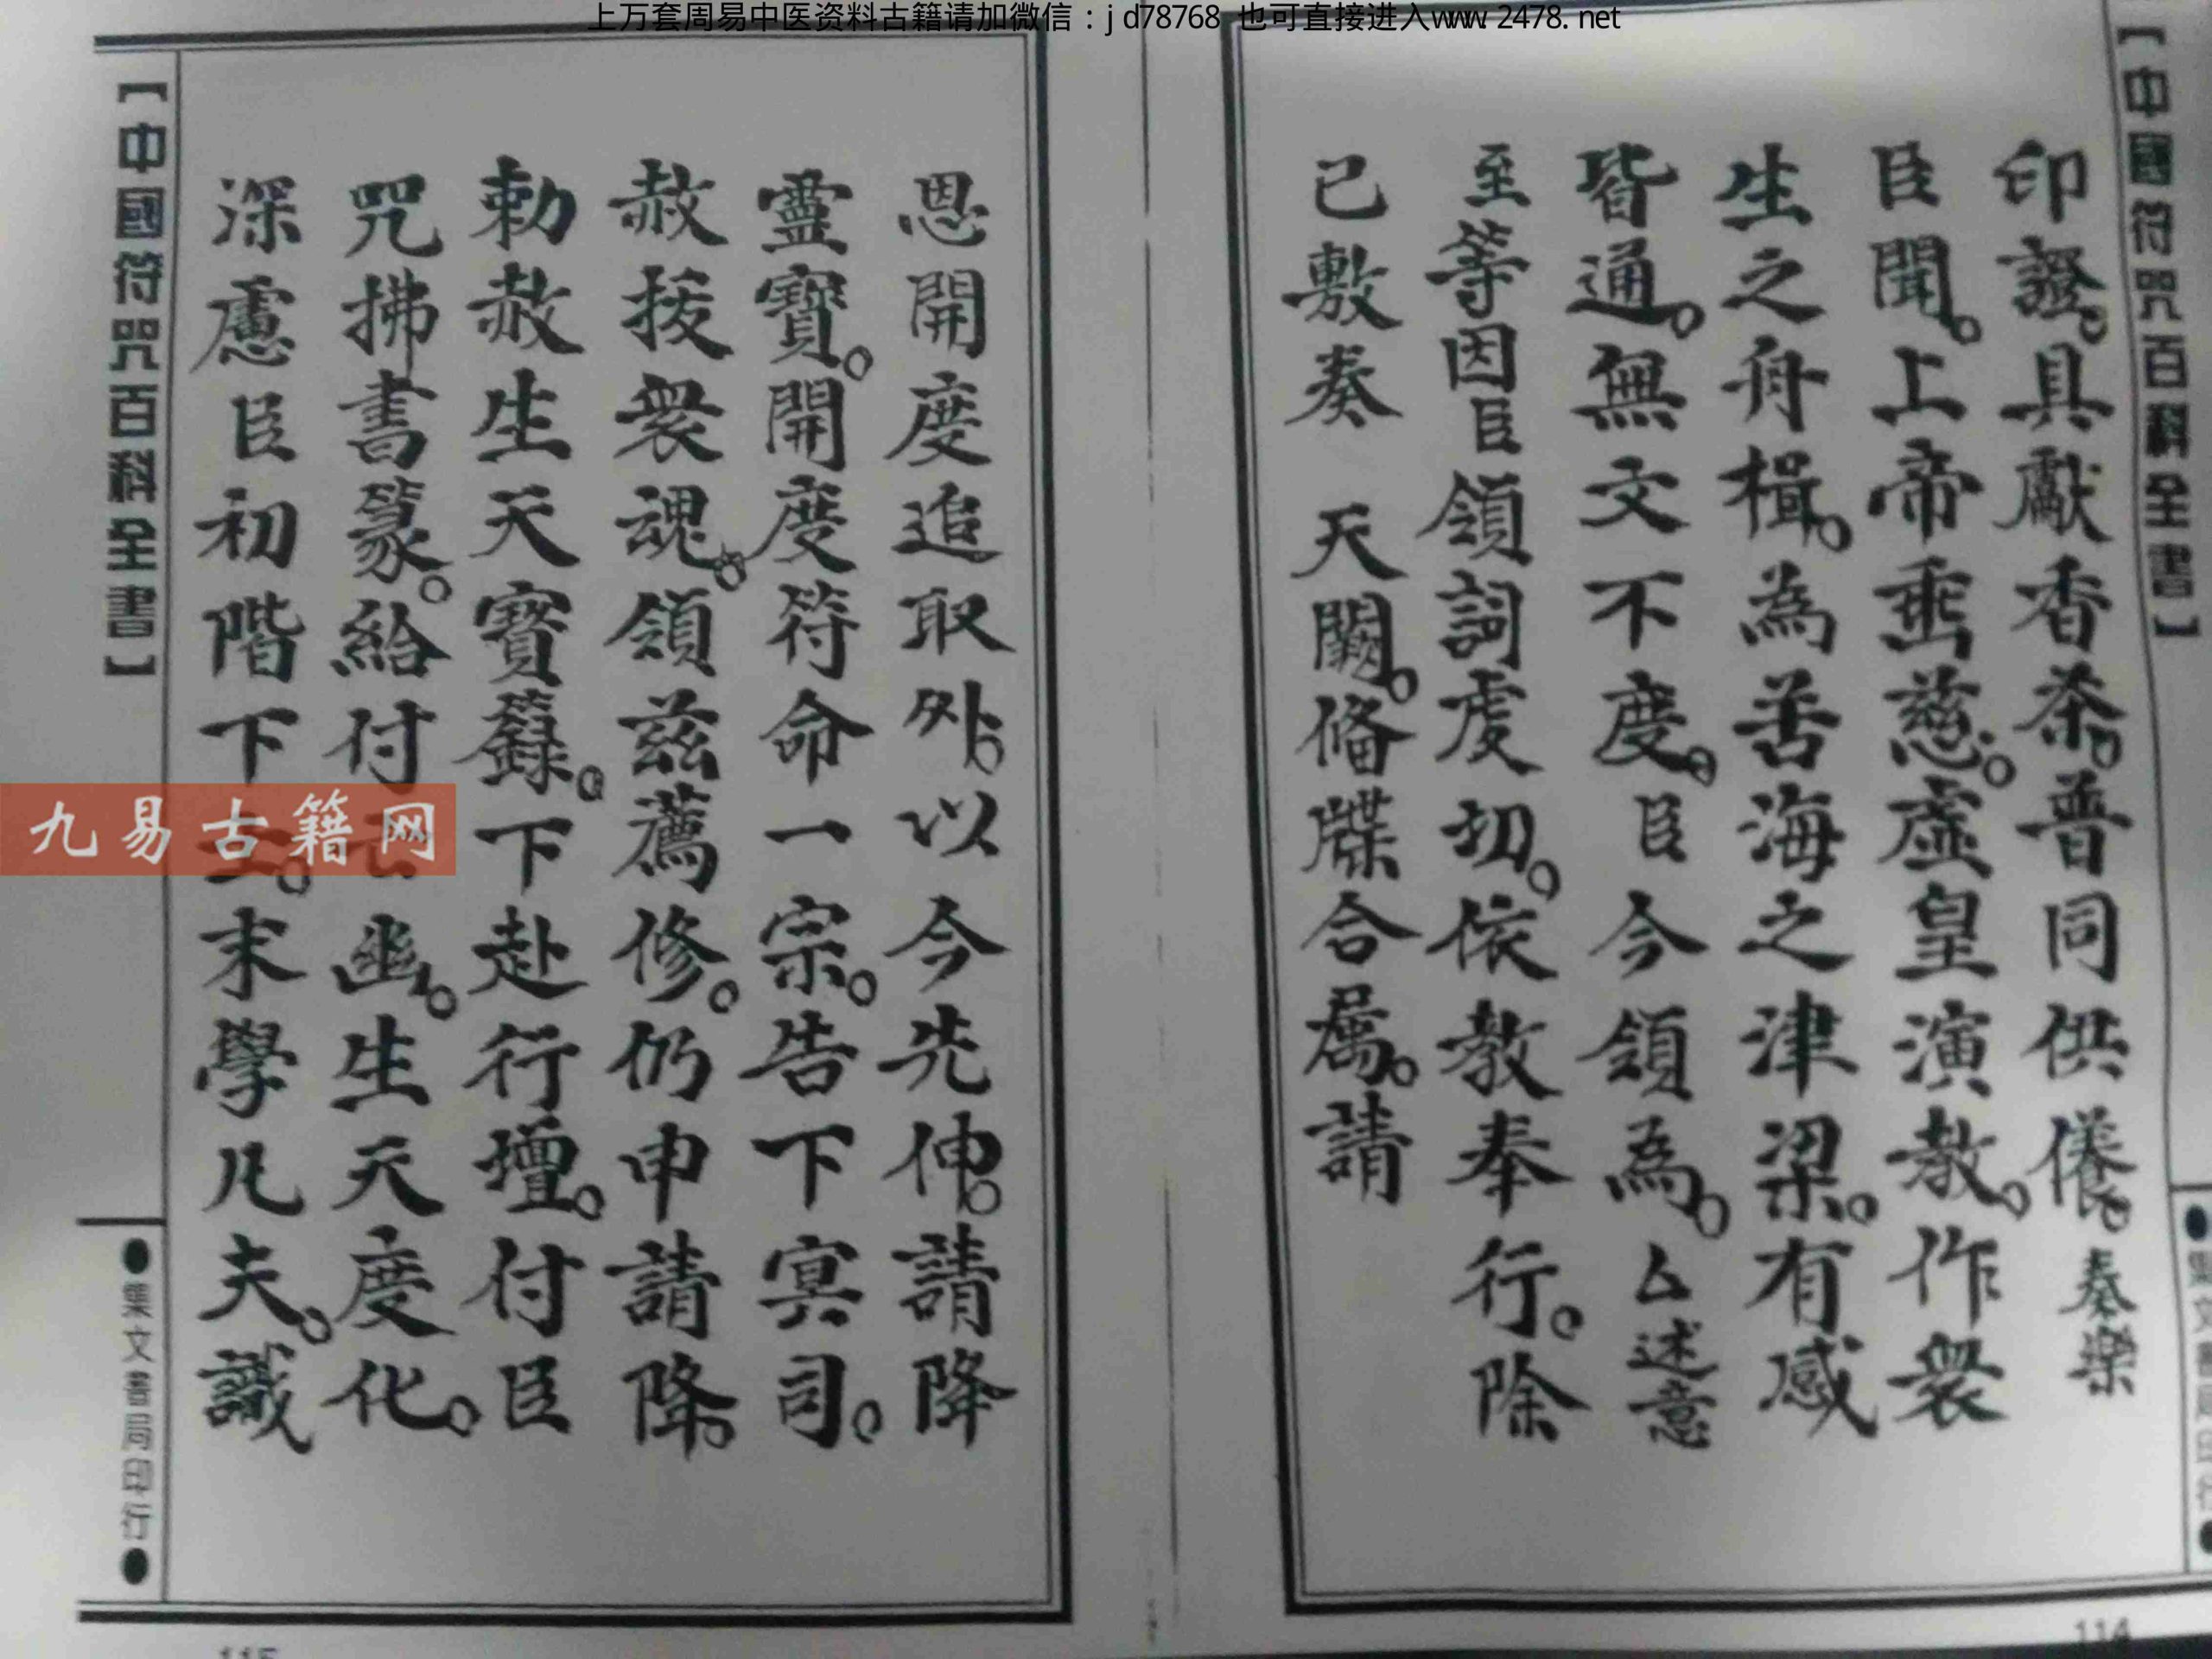 上万套周易中医资料古籍请加微信：jd78768 也可直接进入www.2478.net
【中國符咒百科全書】
印證。具獻香茶。普同供養。奏樂
臣聞。上帝垂慈。虛皇演教。作衆
生之舟楫。為苦海之津梁。有感
皆通。無文不度。臣今領為。厶述意
至等因臣領詞虔切。依教奉行。除
已敷奏 天闕。俻牒合屬。請
114
恩開度追取外。以今先伸。請降
靈寶。開度符命一宗。告下冥司。
赦拔衆魂。領兹薦修。仍申請降。
勅赦生天寶籙。下赴行壇。付臣
咒拂書篆。給付亡幽。生天度化。
深慮臣初階下士。末學凡夫。識
【中國符咒百科全書】
●集文書局印行●
115
九易古籍网